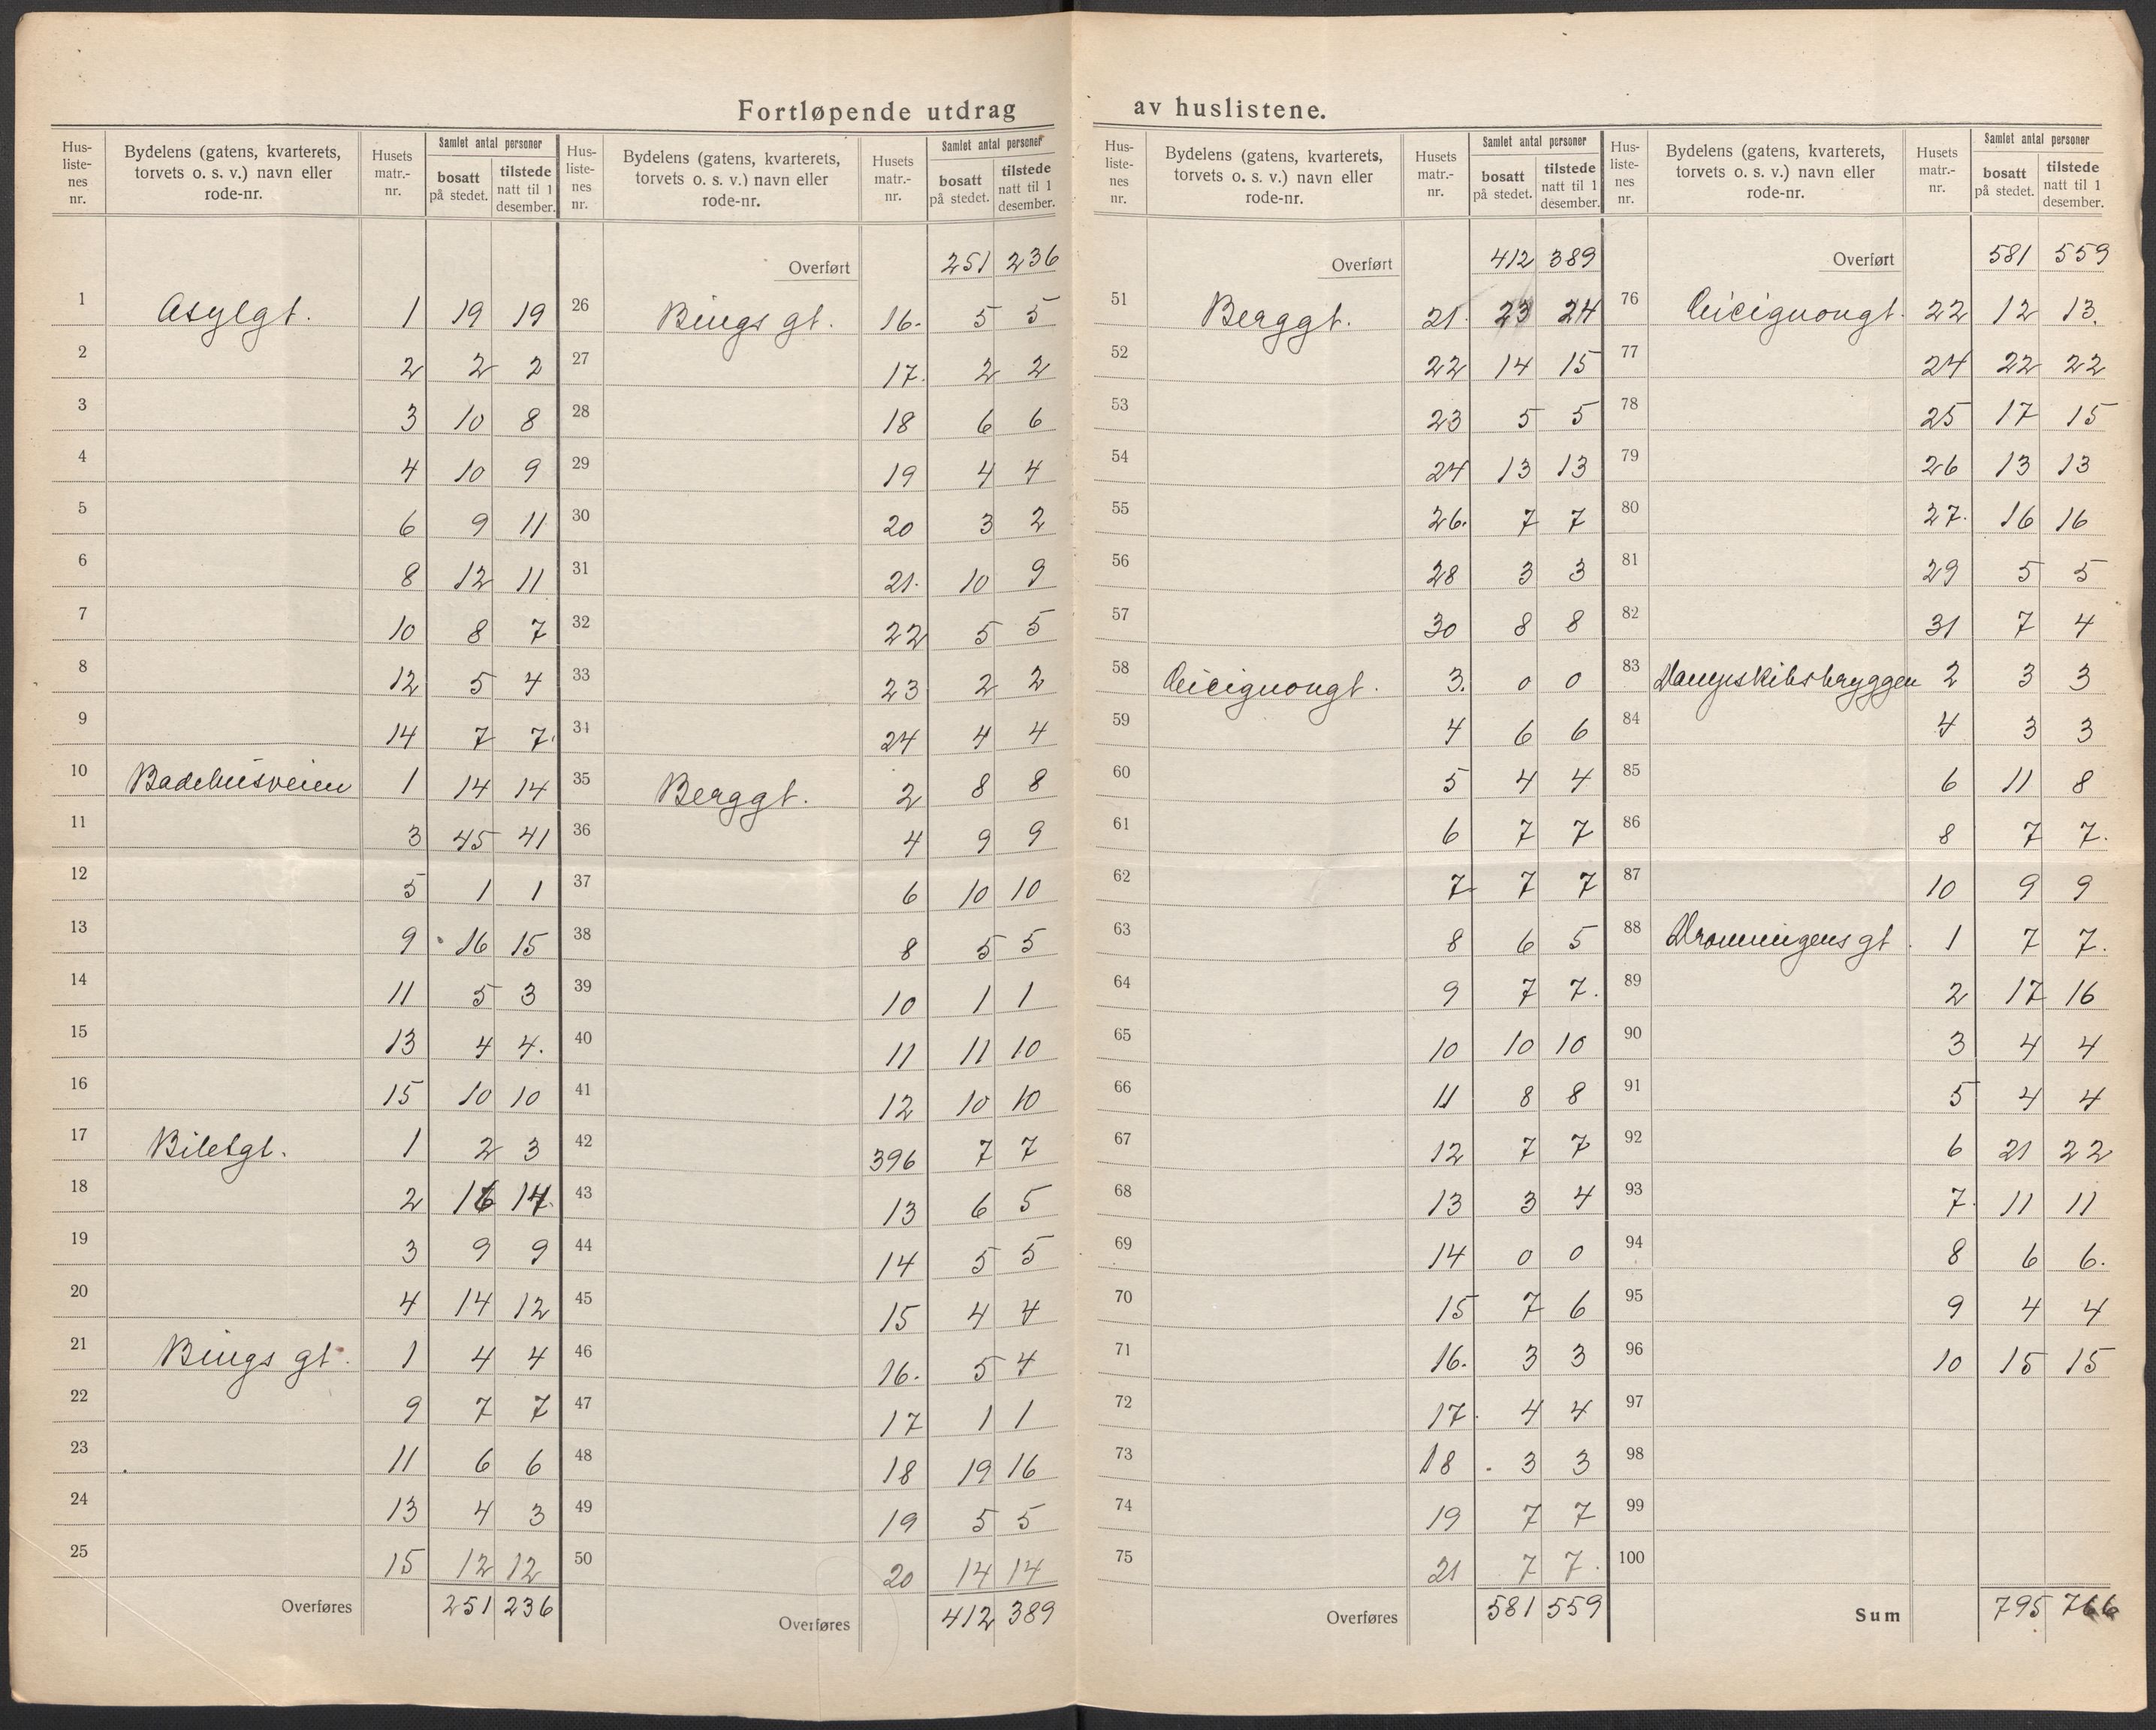 Fortløpende utdrag av huslistene.
Hus-listenes nr. | Bydelens (gatens, kvarterets, torvets o. s. v.) navn eller rode-nr. | Husets matr.-nr. | Samlet antal personer bosatt på stedet. | tilstede natt til 1 desember.
1 Asylgt. 1 19 19
2 2 2 2
3 3 10 8
4 4 10 9
5 6 9 11
6 8 12 11
7 10 8 7
8 12 5 4
9 14 7 7.
10 Badehusveien 1 14 14
11 3 45 41
12 5 1 1
13 9 16 15
14 11 5 3
15 13 4 4.
16 15 10 10
17 Biletgt. 1 2 3
18 2 16 14.
19 3 9 9
20 4 14 12
21 Bings gt. 1 4 4
22 9 7 7
23 11 6 6
24 13 4 3
25 15 12 12
Overføres 251 236
Hus-listenes nr. | Bydelens (gatens, kvarterets, torvets o. s. v.) navn eller rode-nr. | Husets matr.-nr. | Samlet antal personer bosatt på stedet. | tilstede natt til 1 desember.
Overført 251 236
26 Bings gt. 16. 5 5
27 17. 2 2
28 18 6 6
29 19 4 4
30 20 3 2
31 21. 10 9
32 22 5 5
33 23 2 2
34 24 4 4
35 Berggt. 2 8 8
36 4 9 9
37 6 10 10
38 8 5 5
39 10 1 1
40 11 11 10
41 12 10 10
42 396 7 7
43 13 6 5
44 14 5 5
45 15 4 4
46 16. 5 4
47 17 1 1
48 18 19 16
49 19 5 5
50 20 14 14
Overføres 412 389
Hus-listenes nr. | Bydelens (gatens, kvarterets, torvets o. s. v.) navn eller rode-nr. | Husets matr.-nr. | Samlet antal personer bosatt på stedet. | tilstede natt til 1 desember.
Overført 412 389
51 Berggt. 21. 23 24
52 22 14 15
53 23 5 5
54 24 13 13
55 26. 7 7
56 28 3 3
57 30 8 8
58 Cicignongt. 3. 0 0
59 4 6 6
60 5 4 4
61 6 7 7
62 7 7 7
63 8 6 5
64 9 7 7.
65 10 10 10
66 11 8 8
67 12 7 7
68 13 3 4
69 14 0 0
70 15 7 6
71 16. 3 3
72 17. 4 4
73 18 3 3
74 19 7 7
75 21 7 7.
Overføres 581 559
Hus-listenes nr. | Bydelens (gatens, kvarterets, torvets o. s. v.) navn eller rode-nr. | Husets matr.-nr. | Samlet antal personer bosatt på stedet. | tilstede natt til 1 desember.
Overført 581 559
76 Cicignongt. 22 12 13.
77 24 22 22
78 25 17 15
79 26 13 13
80 27. 16 16
81 29 5 5
82 31 7 4
83 Dampskibsbryggen 2 3 3
84 4 3 3
85 6 11 8
86 8 7 7.
87 10 9 9
88 Dronningens gt. 1 7 7.
89 2 17 16
90 3 4 4
91 5 4 4
92 6 21 22
93 7. 11 11
94 8 6 6.
95 9 4 4
96 10 15 15
97
98
99
100
Sum 795 766